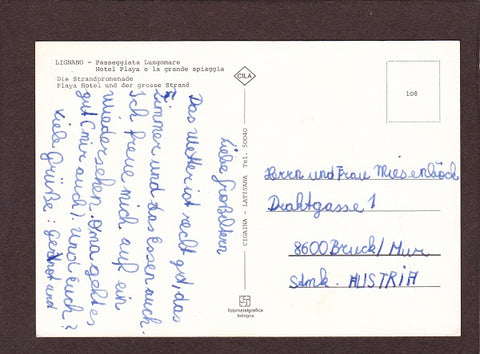 LIGNANO - Passeggiata Lungomare
Hotel Playa e la grande spiaggia
Die Strandpromenade
Playa Hotel und der grosse Strand
CILA
108
Liebe Großeltern
Das Wetter ist recht gut, das
Zimmer und das Essen auch.
Ich freue mich auf ein
Wiedersehen. Oma geht es
gut (mir auch). Und Euch?
Viele Grüße: Gernot und
CIGAINA - LATISANA Tel. 50040
Herrn und Frau Miesenböck
Drahtgasse 1
8600 Bruck/Mur
Stmk. AUSTRIA
fotometalgrafica
bologna